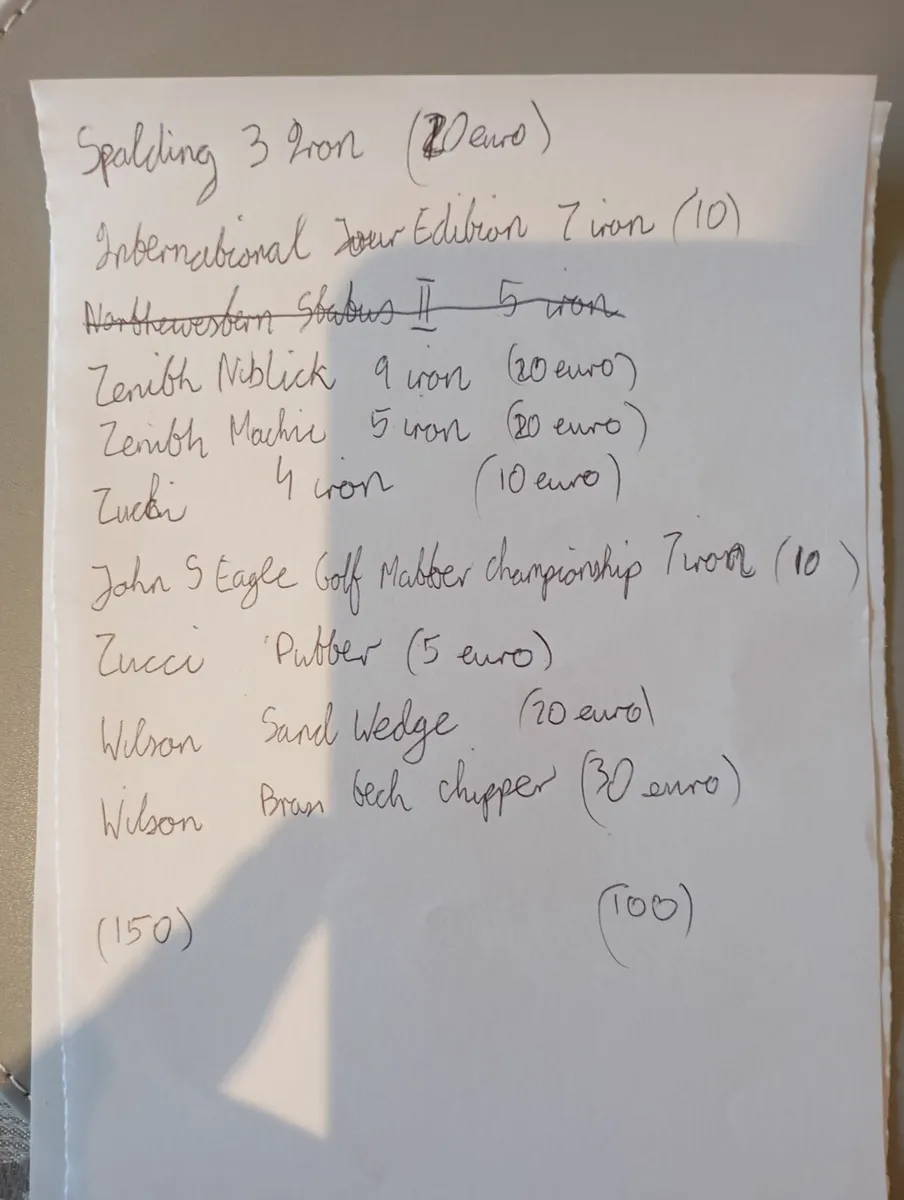 Spalding 3 Iron (20 euro)
International Tour Edition 7 iron (10)
Northewestern Status II 5 iron
Zenith Niblick 9 iron (20 euro)
Zenith Machie 5 iron (20 euro)
Zucci 4 iron (10 euro)
John S Eagle Golf Matter championship 7 iron (10)
Zucci Putter (5 euro)
Wilson Sand Wedge (20 euro)
Wilson tech chipper (30 euro)
(150) (100)